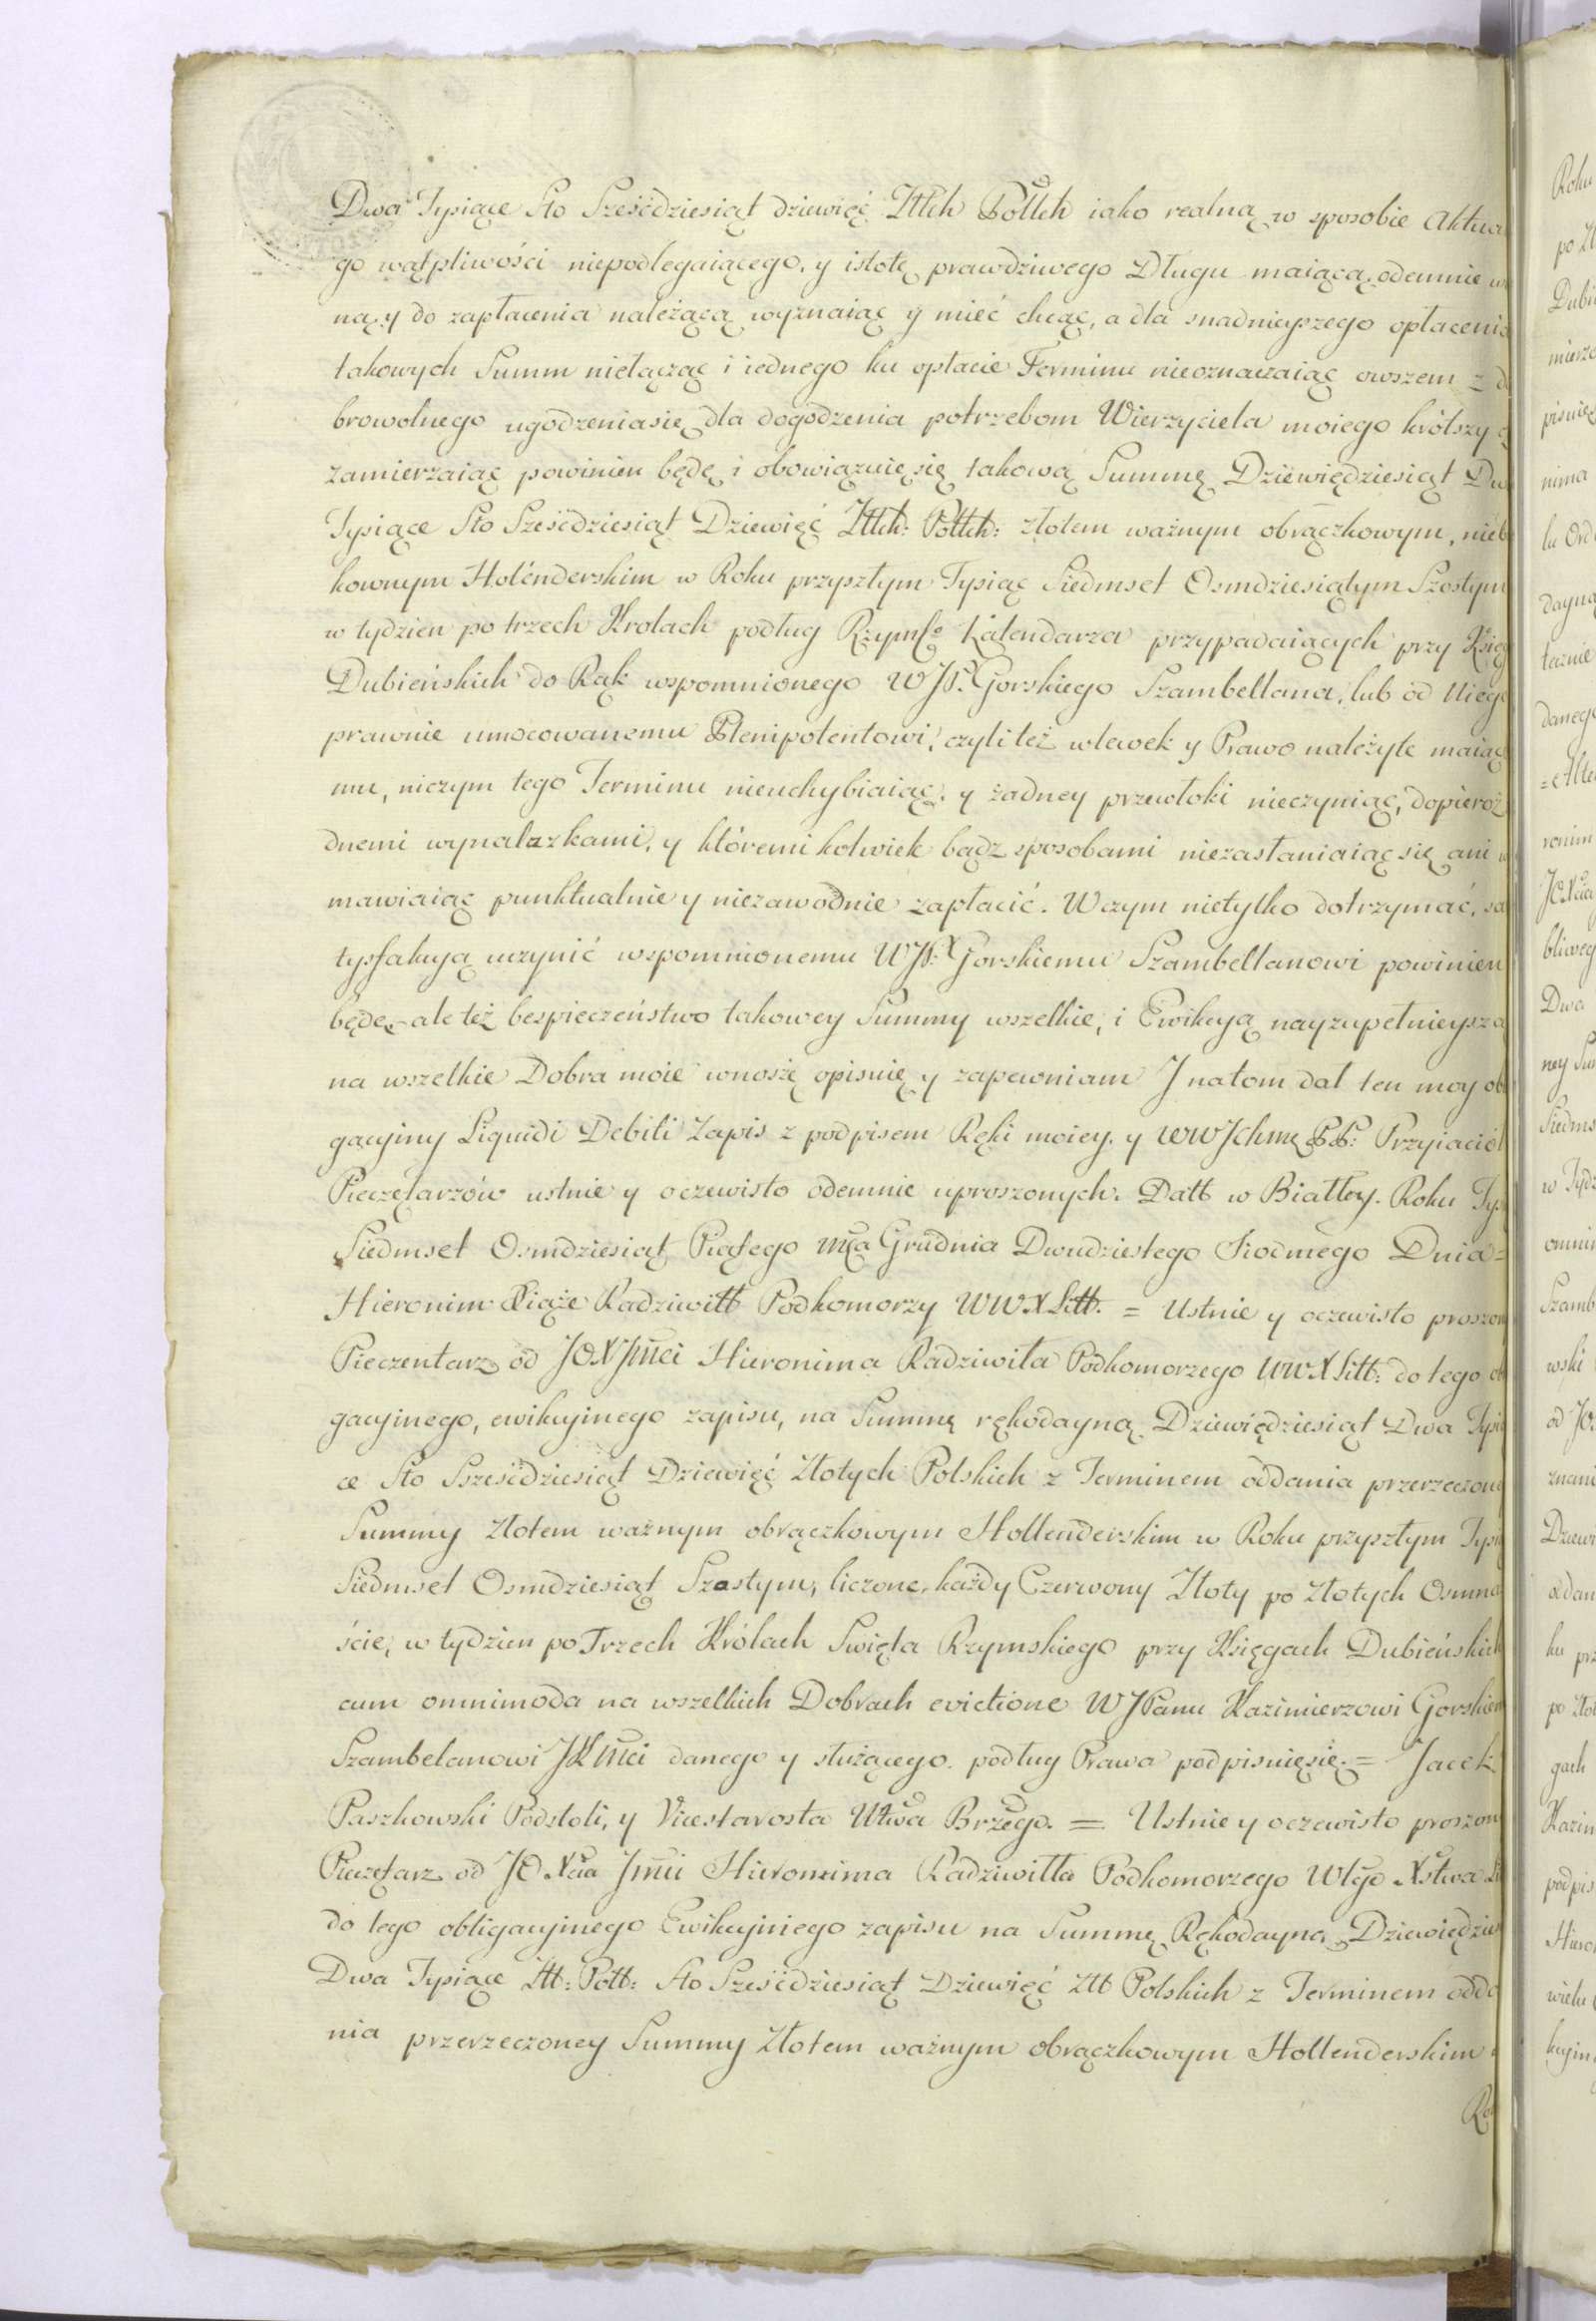 Dwa Tysiące Sto Sześćdziesiąt dziewięć Złłch Połłch iako realną w sposobie Aktua
go wątpliwości niepodlegaiącego, y istotę prawdziwego Długu maiącą, odemnie
ną, y do zapłacenia należącą wyznaiąc y mieć chcąc, a dla snadnieyszego opłacenia
takowych Summ niełącząc i iednego ku opłacie Terminu nieoznaczaiąc owszem z d
browolnego ugodzeniasię, dla dogodzenia potrzebom Wierzyciela moiego krótszy
zamierzaiąc powinien będę i obowiązuię się takową Summę Dziewięćdziesiąt Dw
Tysiące Sto Sześćdziesiąt Dziewięć Złłch: Połłch: złotem ważnym obrączkowym, nieb
kownym Holenderskim w Roku przyszłym Tysiąc Siedmset Osmdziesiątym Szostym
w tydzien po trzech Krolach podług Rzymſo Kalendarza przypadaiących przy Księg
Dubieńskich do Rąk wspomnionego WJP. Gorskiego Szambellana, lub od niego
prawnie umocowanemu Plenipotentowi, czyli też wlewek y Prawo należyte maiąc
mu, niczym tego Terminu nieuchybiaiąc, y żadney przewłoki nieczyniąc, dopieroż
dnemi wynalazkami, y któremi kolwiek bądz sposobami niezasłaniaiąc się ani w
mawiaiąc punktualnie y niezawodnie zapłacić. W czym nietylko dotrzymać, sa
tysfakcyą uczynić wspomnionemu WJP. Gorskiemu Szambellanowi powinien
będę, ale też bespieczeństwo takowey Summy wszelkie, i Ewikcyą nayzupełnieyszą
na wszelkie Dobra moie wnoszę opisuię y zapewniam J natom dał ten moy ob
gacyiny Liquidi Debiti Zapis z podpisem Ręki moiey, y WWJchmę PP: Przyiaciół
Pieczętarzów ustnie y oczewisto odemnie uproszonych. Datt w Białłey. Roku Tys
Siedmset Osmdziesiąt Piątego mca Grudnia Dwudziestego Siodmego Dnia =
Hieronim Xiąże Radziwiłł Podkomorzy WWXLitt. = Ustnie y oczewisto proszon
Pieczentarz od JOXJmci Hieronima Radziwiła Podkomorzego WWXLitt: do tego ob
gacyinego, ewikcyinego zapisu, na Summę rękodayną Dziewięćdziesiąt Dwa Tysią
ce Sto Sześćdziesiąt Dziewięć Złotych Polskich z Terminem oddania przerzeczone
Summy Złotem ważnym obrączkowym Hollenderskim w Roku przyszłym Tysią
Siedmset Osmdziesiąt Szostym, liczone, każdy Czerwony Złoty po Złotych Osmna
ście, w tydzien po Trzech Królach Swięta Rzymskiego przy Księgach Dubieńskich
cum omnimoda na wszelkich Dobrach evictione WJPanu Kazimierzowi Gorskiem
Szambelanowi JKMci danego y służącego. podług Prawa podpisuięsię. = Jacek
Paszkowski Podstoli, y Vicestarosta Wtwa Brzego. = Ustnie y oczewisto proszon
Pieczętarz od JO Xcia Jmci Hieronima Radziwiłła Podkomorzego Wlgo Xstwa Li
do tego obligacyinego Ewikcyiniego zapisu na Summę Rękodayną Dziewiędzies
Dwa Tysiące Złł: Połł: Sto Sześćdziesiąt Dziewięć Złł Polskich z Terminem odda
nia przerzeczoney Summy Złotem ważnym obrączkowym Hollenderskim
Ro